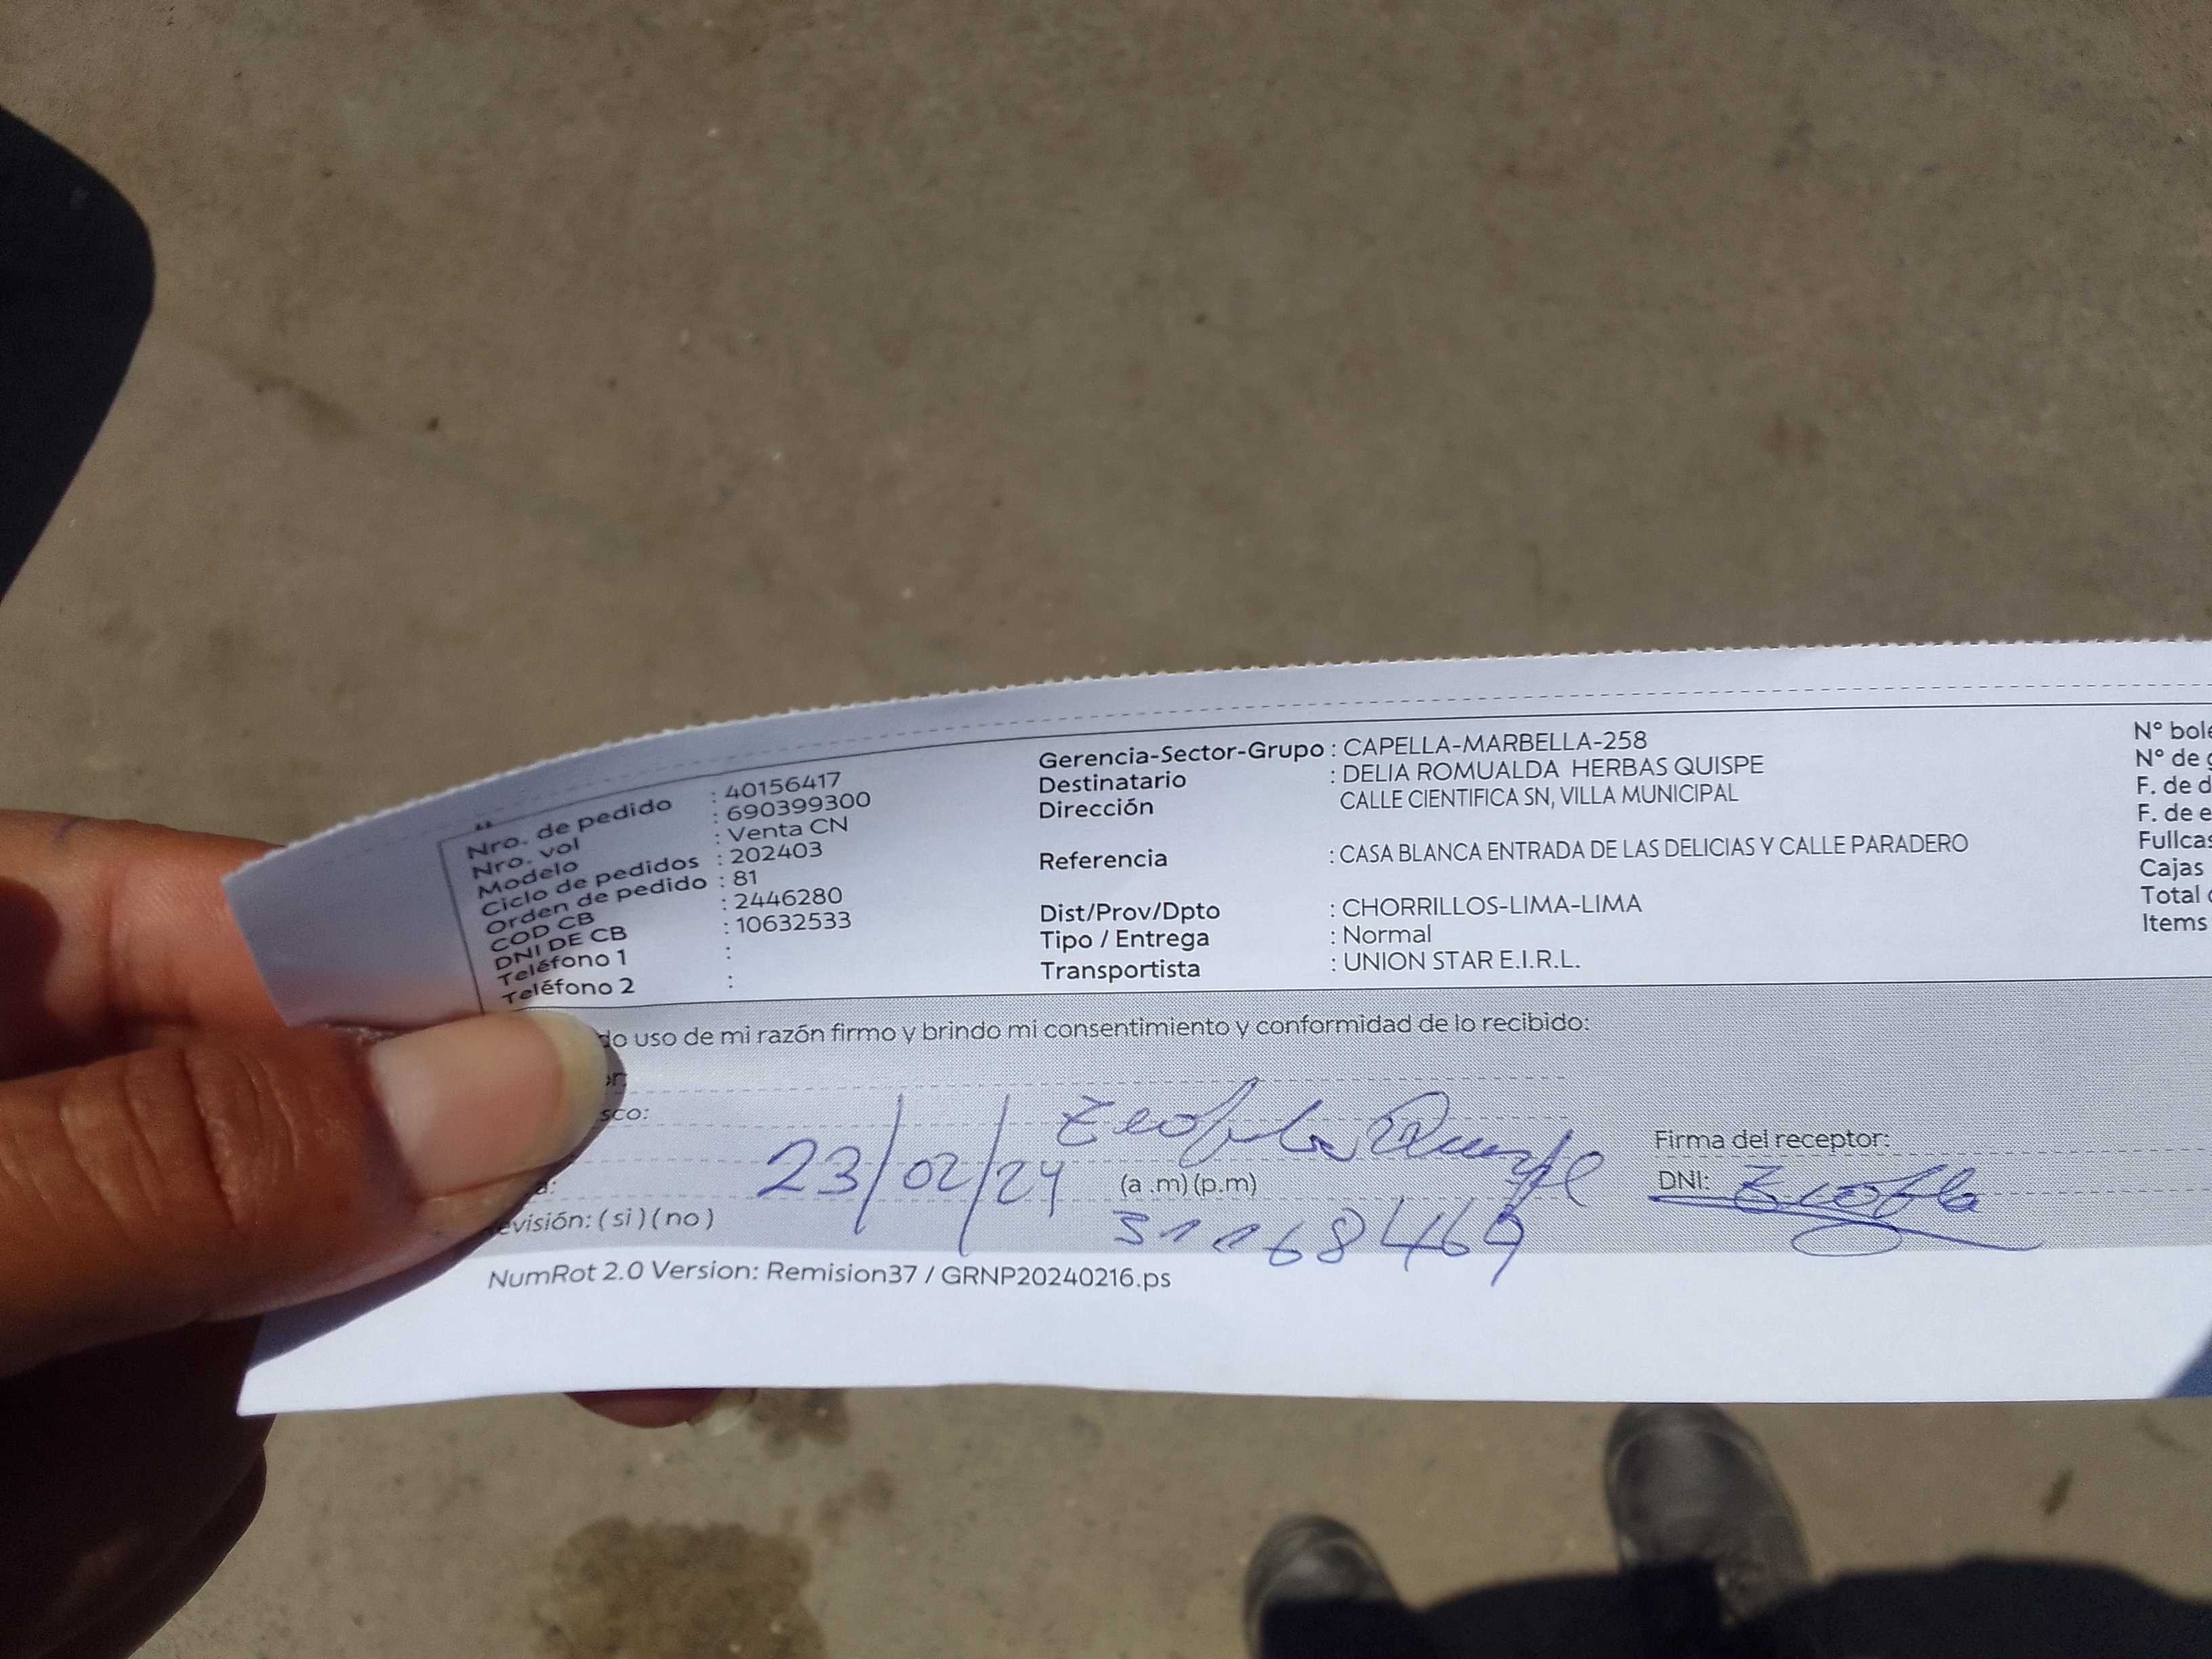 Nro. de pedido : 40156417
Nro. vol : 690399300
Modelo : Venta CN
Ciclo de pedidos : 202403
Orden de pedido : 81
COD CB : 2446280
DNI DE CB : 10632533
Teléfono 1 :
Teléfono 2 :
Gerencia-Sector-Grupo : CAPELLA-MARBELLA-258
Destinatario : DELIA ROMUALDA HERBAS QUISPE
Dirección CALLE CIENTIFICA SN, VILLA MUNICIPAL
Referencia : CASA BLANCA ENTRADA DE LAS DELICIAS Y CALLE PARADERO
Dist/Prov/Dpto : CHORRILLOS-LIMA-LIMA
Tipo / Entrega : Normal
Transportista : UNION STAR E.I.R.L.
N° bole
N° de
F. de d
F. de e
Fullcas
Cajas
Total
Items
do uso de mi razón firmo y brindo mi consentimiento y conformidad de lo recibido:
sco:
23/02/24
(a.m) (p.m)
evisión: ( si ) ( no )
Firma del receptor:
DNI:
NumRot 2.0 Version: Remision37 / GRNP20240216.ps